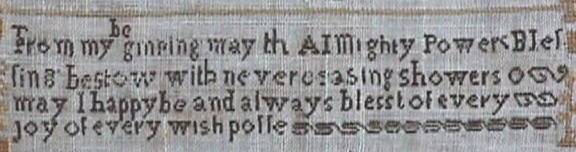 From my be
ginning may th AlMighty Powers Bles
sing bestow with never ceasing showers
may I happy be and always blesst of every
joy of every wish posse